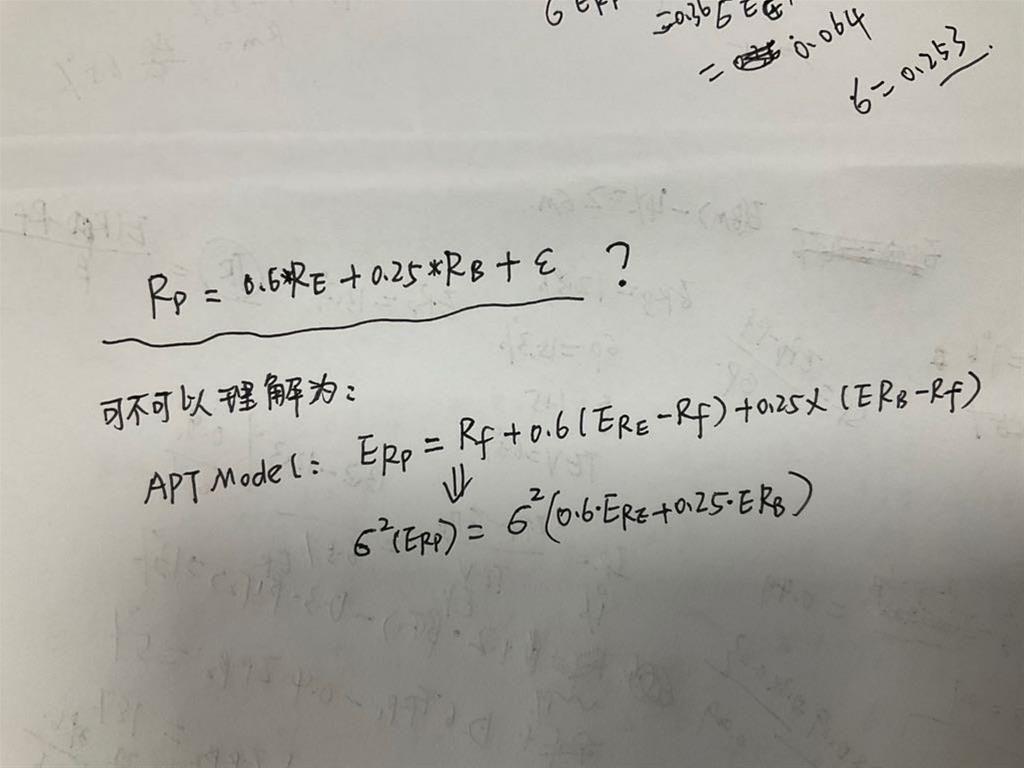 = 0.064
6 = 0.253.
Rp = 0.6*RE + 0.25*RB + ε ?
可不可以理解为:
APT Model: ERP = Rf + 0.6(ERE - Rf) + 0.25 × (ERB - Rf)
⇓
6²(ERP) = 6²(0.6·ERE + 0.25·ERB)